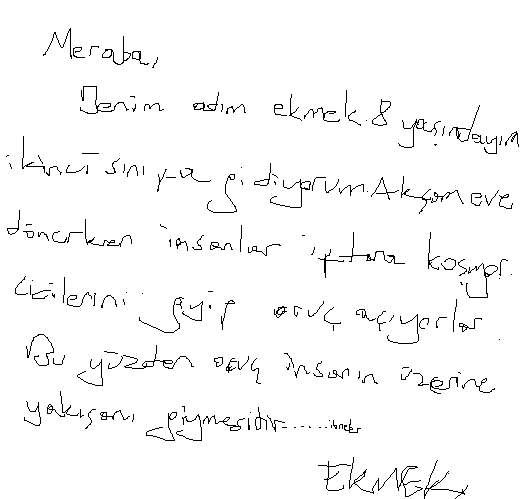 Meraba,
Benim adım ekmek. 8 yaşındayım
ikinci sınıfa gidiyorum. Akşam eve
dönerken insanlar iftara koşuyor.
Cicilerini giyip oruç açıyorlar.
Bu yüzden oruç insanın üzerine
yakışanı giymesidir.......
EKMEK